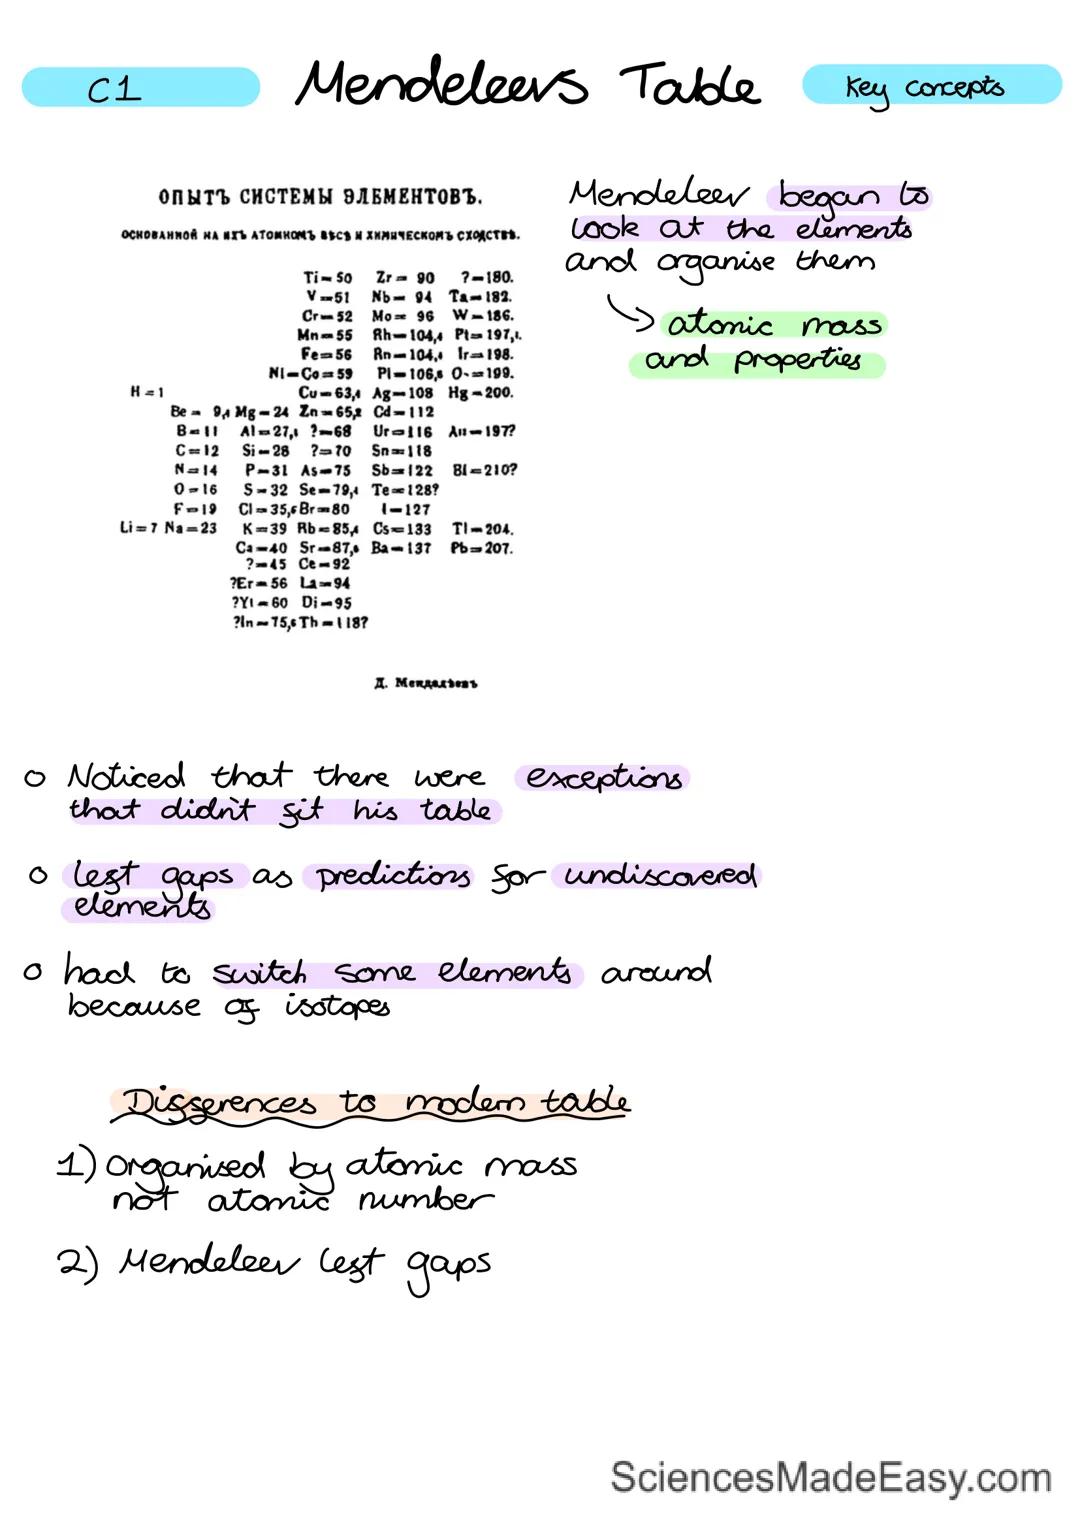 C1
Mendeleevs Table
Key concepts
ОПЫТЪ СИСТЕМЫ ЭЛЕМЕНТОВЪ.
ОСНОВАННОЙ НА ИХЪ АТОМНОМЪ ВѢСѢ И ХИМИЧЕСКОМЪ СХОДСТВѢ.
Ti=50 Zr=90 ?=180.
V=51 Nb=94 Ta=182.
Cr=52 Mo=96 W=186.
Mn=55 Rh=104,4 Pt=197,1.
Fe=56 Rn=104,4 Ir=198.
Ni=Co=59 Pl=106,6 O-=199.
H=1 Cu=63,4 Ag=108 Hg=200.
Be=9,4 Mg=24 Zn=65,2 Cd=112
B=11 Al=27,1 ?=68 Ur=116 Au=197?
C=12 Si=28 ?=70 Sn=118
N=14 P=31 As=75 Sb=122 Bi=210?
O=16 S=32 Se=79,4 Te=128?
F=19 Cl=35,5 Br=80 I=127
Li=7 Na=23 K=39 Rb=85,4 Cs=133 Tl=204.
Ca=40 Sr=87,6 Ba=137 Pb=207.
?=45 Ce=92
?Er=56 La=94
?Yt=60 Di=95
?In=75,6 Th=118?
Д. Менделѣевъ
Mendeleev began to
look at the elements
and organise them
atomic mass
and properties
Noticed that there were exceptions
that didn't fit his table
left gaps as predictions for undiscovered
elements
had to switch some elements around
because of isotopes
Differences to modern table
1) Organised by atomic mass
not atomic number
2) Mendeleev left gaps
SciencesMadeEasy.com